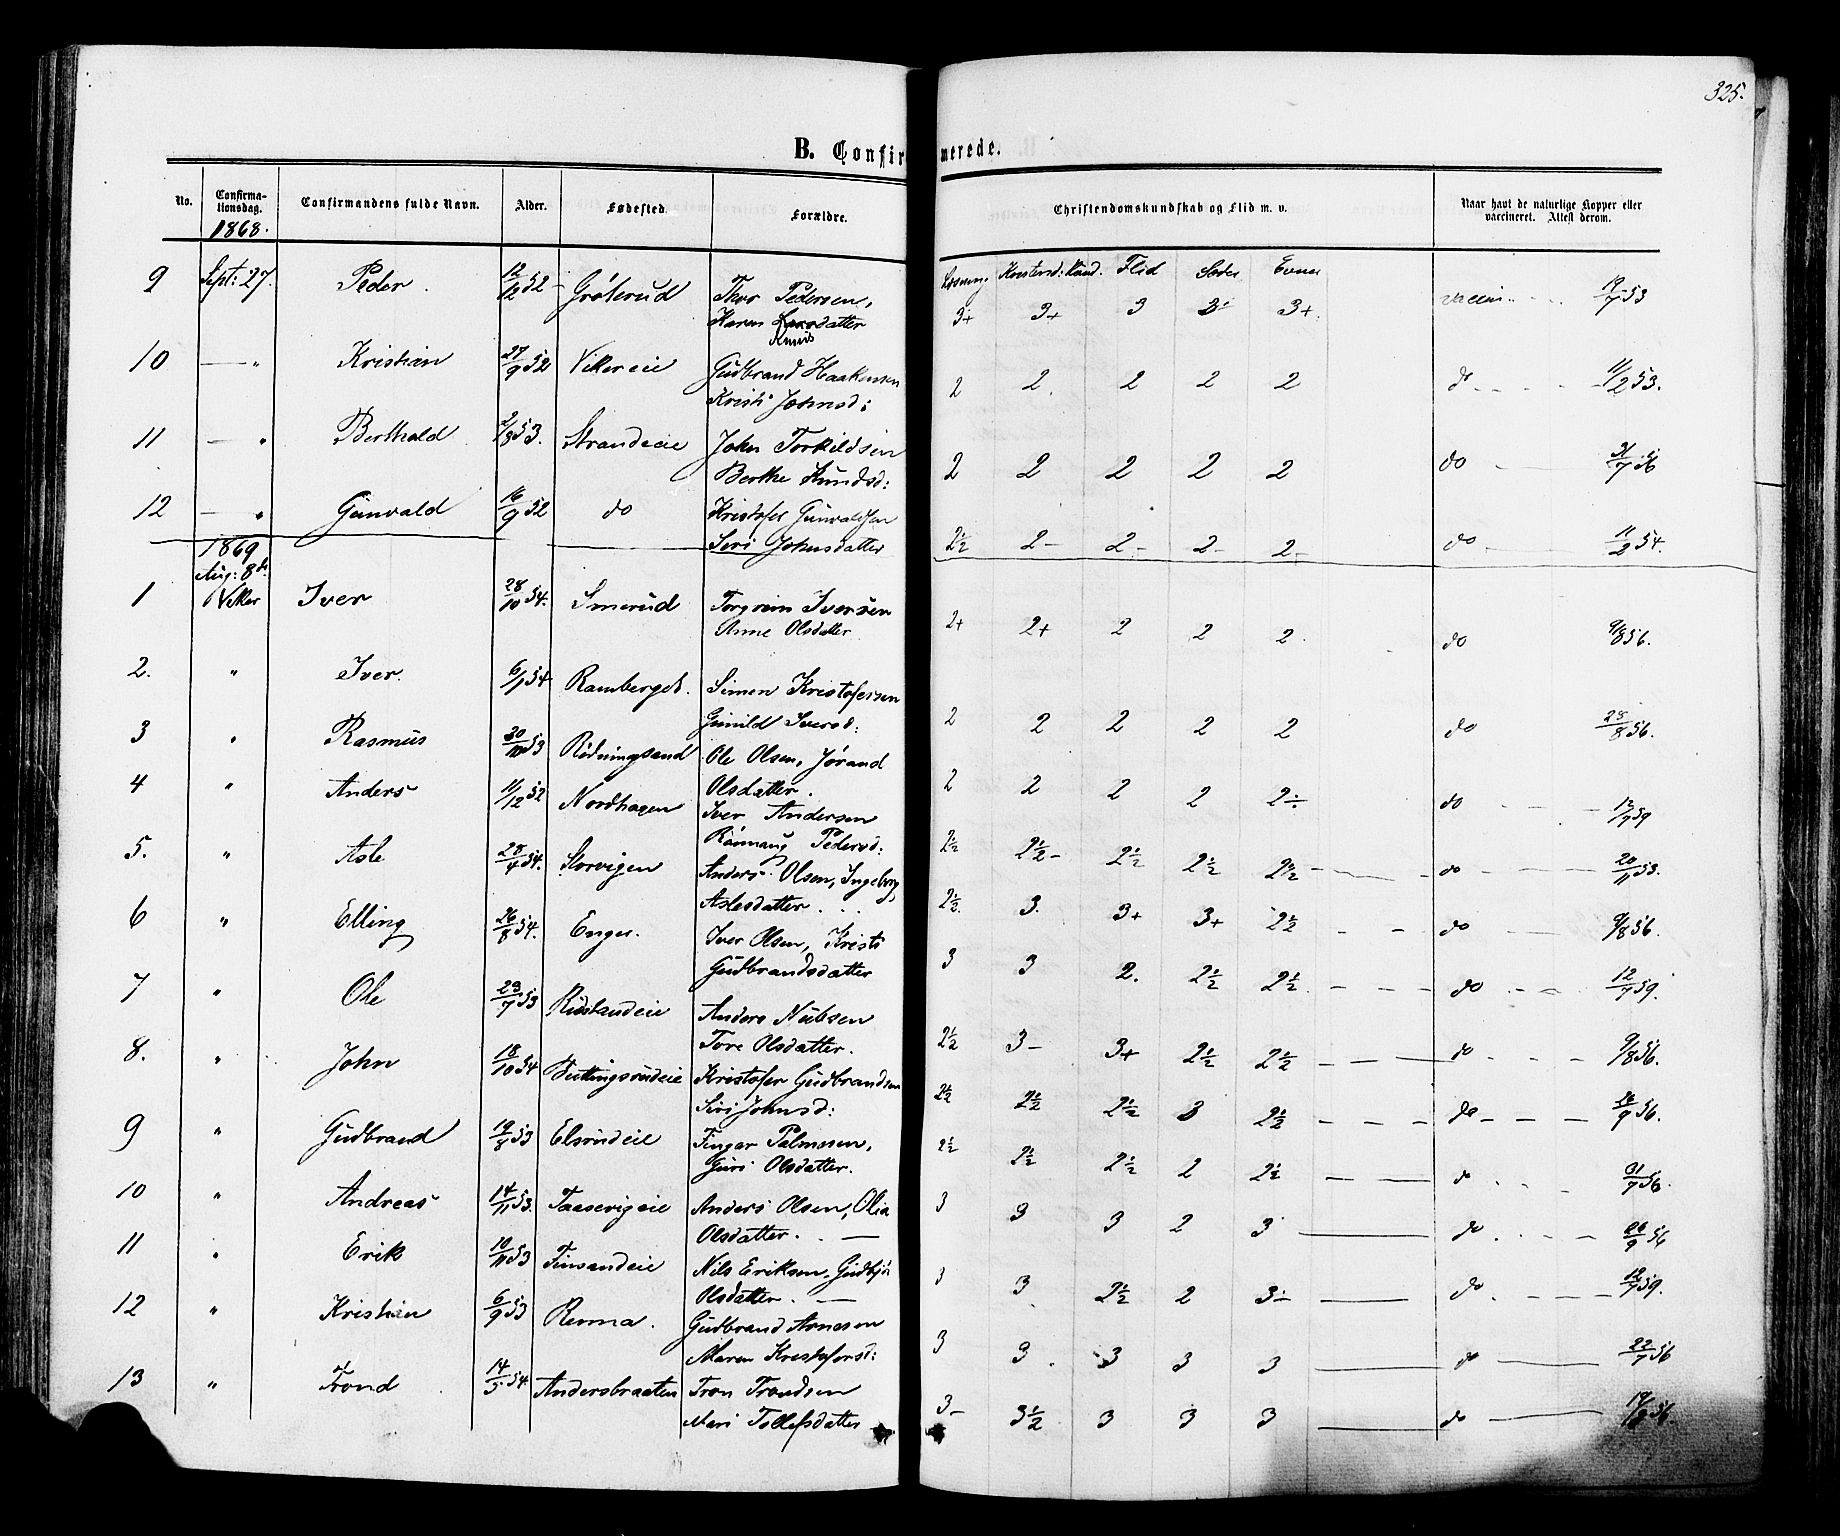 325.
B. Confirmerede.
No. Confirmationsdag. Confirmandens fulde Navn. Alder. Fødested. Forældre. Christendomskundskab og Flid m. v. Naar havt de naturlige Kopper eller vaccineret. Attest derom.
1868.
Læsning Kristend: Kund. Flid Sæder Evner
9 Sept: 27. Peder 12/12 52 Gröterud Thor Pedersen, 3+ 3+ 3 3÷ 3+ vaccin 19/7 53
Karen Larsdatter
Knuds
10 — " Kristian 27/9 52 Vikereie Gudbrand Haakensen 2 2 2 2 2 do 11/2 53.
Kristi Johnsd:
11 — " Berthold 2/8 53. Strandeeie John Torkildsen 2 2 2 2 2 do 31/7 56
Berthe Knudsd:
12 — " Gunvald 16/9 52 do Kristofer Gunvaldsen 2½ 2— 2— 2— 2— do 11/2 54.
Siri Johnsdatter
1869
Aug: 8de
1 Viker Iver 28/10 54. Smerud Torgrim Iversen 2+ 2+ 2 2 2 do 9/8 56.
Anne Olsdatter
2. " Iver 6/1 54 Ramberget. Simen Kristofersen 2 2 2 2 2 do 28/8 56.
Gunild Iversd:
3 " Rasmus 30/11 53 Rödningsand Ole Olsen, Jörand 2 2 2 2 2÷ do 12/7 59
Olsdatter.
4 " Anders 11/12 52 Nordhagen Iver Andersen 2½ 2½— 2½ 2½ 2½ do 20/11 53.
Rönnaug Pedersd:
5. " Asle 28/4 54. Storvigen Anders Olsen, Ingeborg 2½. 3. 3+ 3+ 2½ do 9/8 56.
Aslesdatter
6 " Elling 26/8 54. Enger. Iver Olsen, Kristi 3 3 2. 2½ 2½ do 12/7 59.
Gudbrandsdatter
7 " Ole 23/7 53 Rustandeie Anders Nubsen 2½ 3— 3+ 2½ 2½ do 9/8 56.
Tore Olsdatter.
8. " John 18/10 54 Buttingsrudeie Kristofer Gudbrandsen 2½ 2½ 2½ 3 2½ do 26/9 56.
Siri Johnsd:
9 " Gudbrand 19/8 53 Elsrudeie Fingar Palmesen, 2½ 2½ 2½ 2 2½ do 31/7 56.
Guri Olsdatter.
10 " Andreas 14/11 53. Taasevigeie Anders Olsen, Olia 3 3 3 2 3 do 26/9 56
Olsdatter.
11 " Erik 10/11 53 Finsandeie Nils Eriksen, Gudbjör 3 3 2½ 2 3÷ do 12/7 59.
Olsdatter.
12 " Kristian 6/9 53 Renna. Gudbrand Arnesen 3 3 3 3 3 do 22/7 56
Maren Kristofersd:
13 " Trond 14/5 54. Andersbraaten Tron Trondsen 3— 3½ 3 3 3 do 19/8 56.
Mari Tollefsdatter